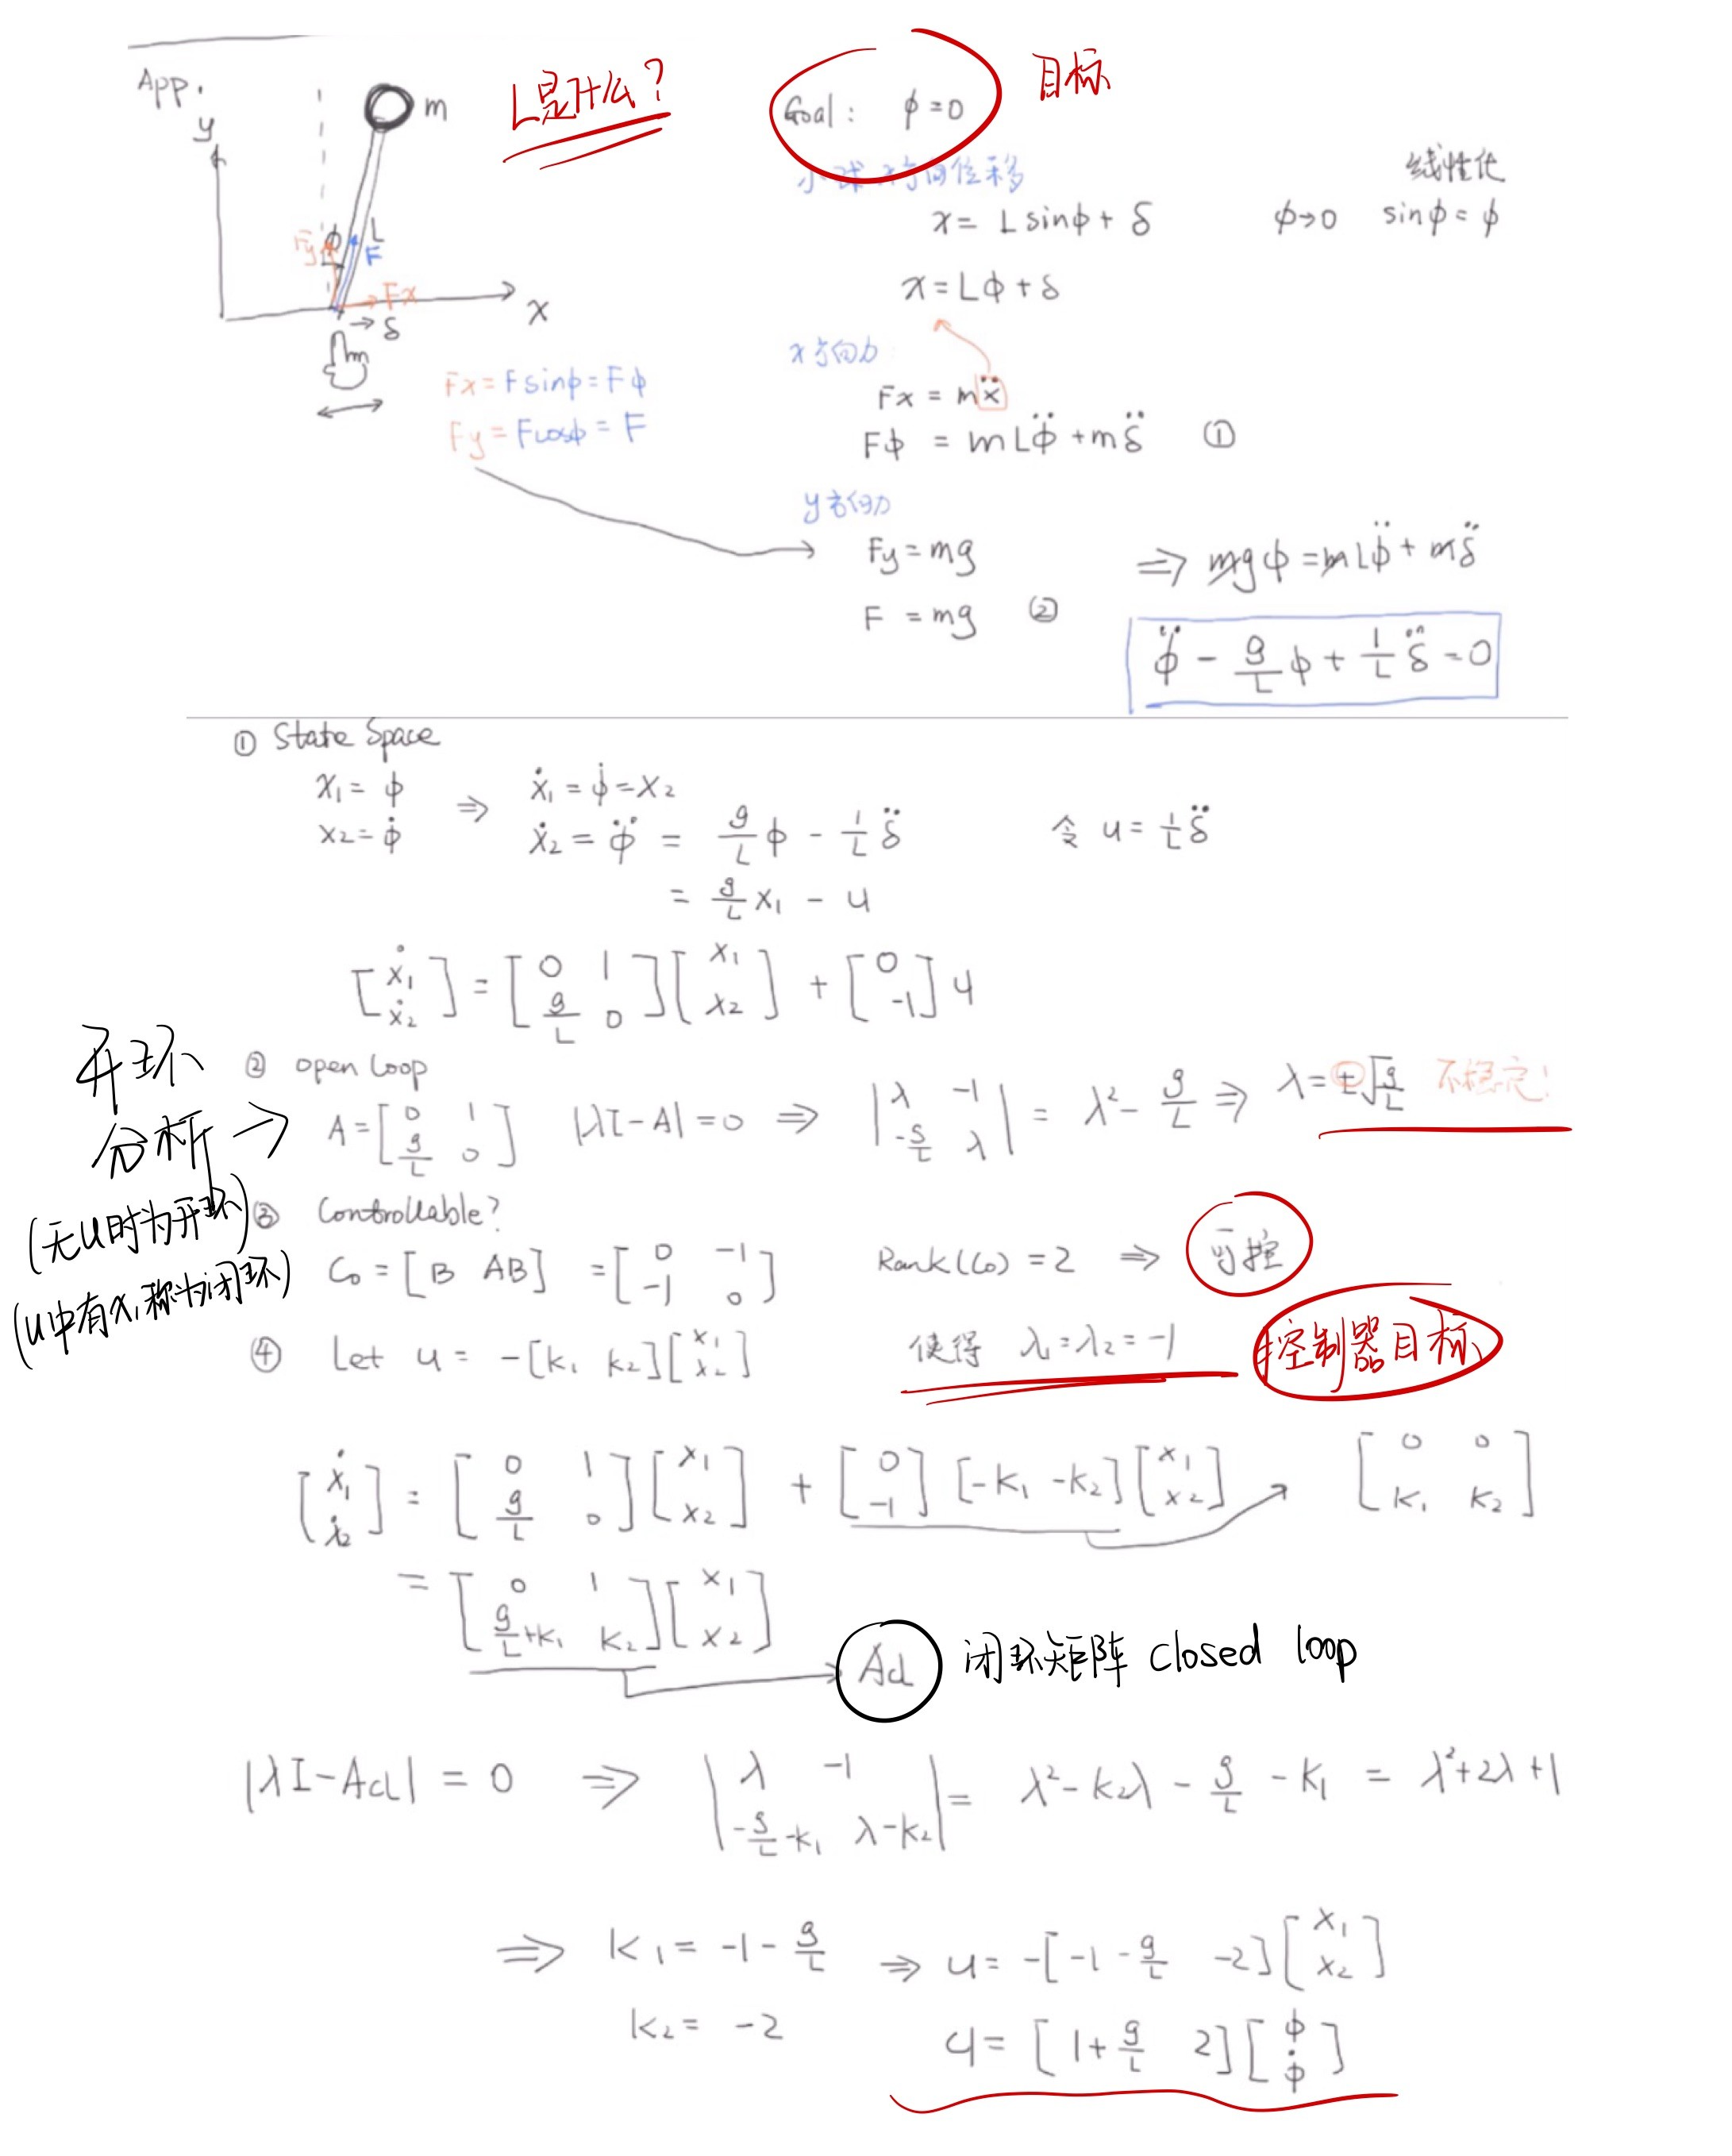 App.
y
m
L是什么?
Goal: φ=0
目标
小球x方向位移
线性化
x = L sinφ + δ
φ→0 sinφ = φ
φ
L
Fy
F
Fx
x
→δ
x = Lφ + δ
x方向力
Fx = F sinφ = Fφ
Fx = mẍ
Fy = F cosφ = F
Fφ = mLφ̈ + mδ̈ ①
y方向力
Fy = mg
⇒ mgφ = mLφ̈ + mδ̈
F = mg ②
φ̈ - g/L φ + 1/L δ̈ = 0
① State Space
x₁ = φ ⇒ ẋ₁ = φ̇ = x₂
x₂ = φ̇ ẋ₂ = φ̈ = g/L φ - 1/L δ̈ 令 u = 1/L δ̈
= g/L x₁ - u
[ẋ₁; ẋ₂] = [0 1; g/L 0][x₁; x₂] + [0; -1] u
开环
分析 →
(无u时为开环)
(u中有x,称为闭环)
② open loop
A = [0 1; g/L 0] |λI-A| = 0 ⇒ |λ -1; -g/L λ| = λ² - g/L ⇒ λ = ±√(g/L) 不稳定!
③ Controllable?
Co = [B AB] = [0 -1; -1 0] Rank(Co) = 2 ⇒ 可控
④ Let u = -[k₁ k₂][x₁; x₂] 使得 λ₁ = λ₂ = -1 控制器目标
[ẋ₁; ẋ₂] = [0 1; g/L 0][x₁; x₂] + [0; -1][-k₁ -k₂][x₁; x₂] → [0 0; k₁ k₂]
= [0 1; g/L+k₁ k₂][x₁; x₂]
Acl 闭环矩阵 closed loop
|λI-Acl| = 0 ⇒ |λ -1; -g/L-k₁ λ-k₂| = λ² - k₂λ - g/L - k₁ = λ²+2λ+1
⇒ k₁ = -1 - g/L ⇒ u = -[-1-g/L -2][x₁; x₂]
k₂ = -2 u = [1+g/L 2][φ; φ̇]